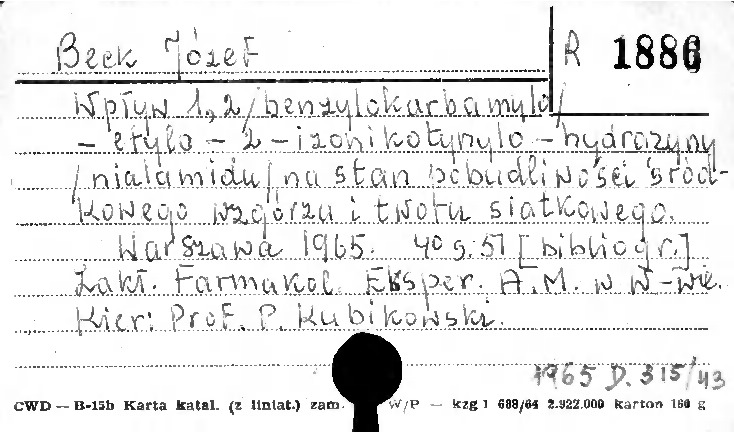 Beck Józef R 1886
Wpływ 1,2/benzylokarbamylo/
- etylo - 2 - izonikotynylo - hydrazyny
/nialamidu/ na stan pobudliwości środ-
kowego wzgórza i tworu siatkowego.
Warszawa 1965. 40 s. 51 [bibliogr.]
Zakł. Farmakol. Eksper. A.M. w W-wie.
Kier: Prof. P. Kubikowski.
1965 D. 315/43
CWD — B-15b Karta katal. (z liniat.) zam. W/P — kzg 1 688/64 2.922.000 karton 160 g